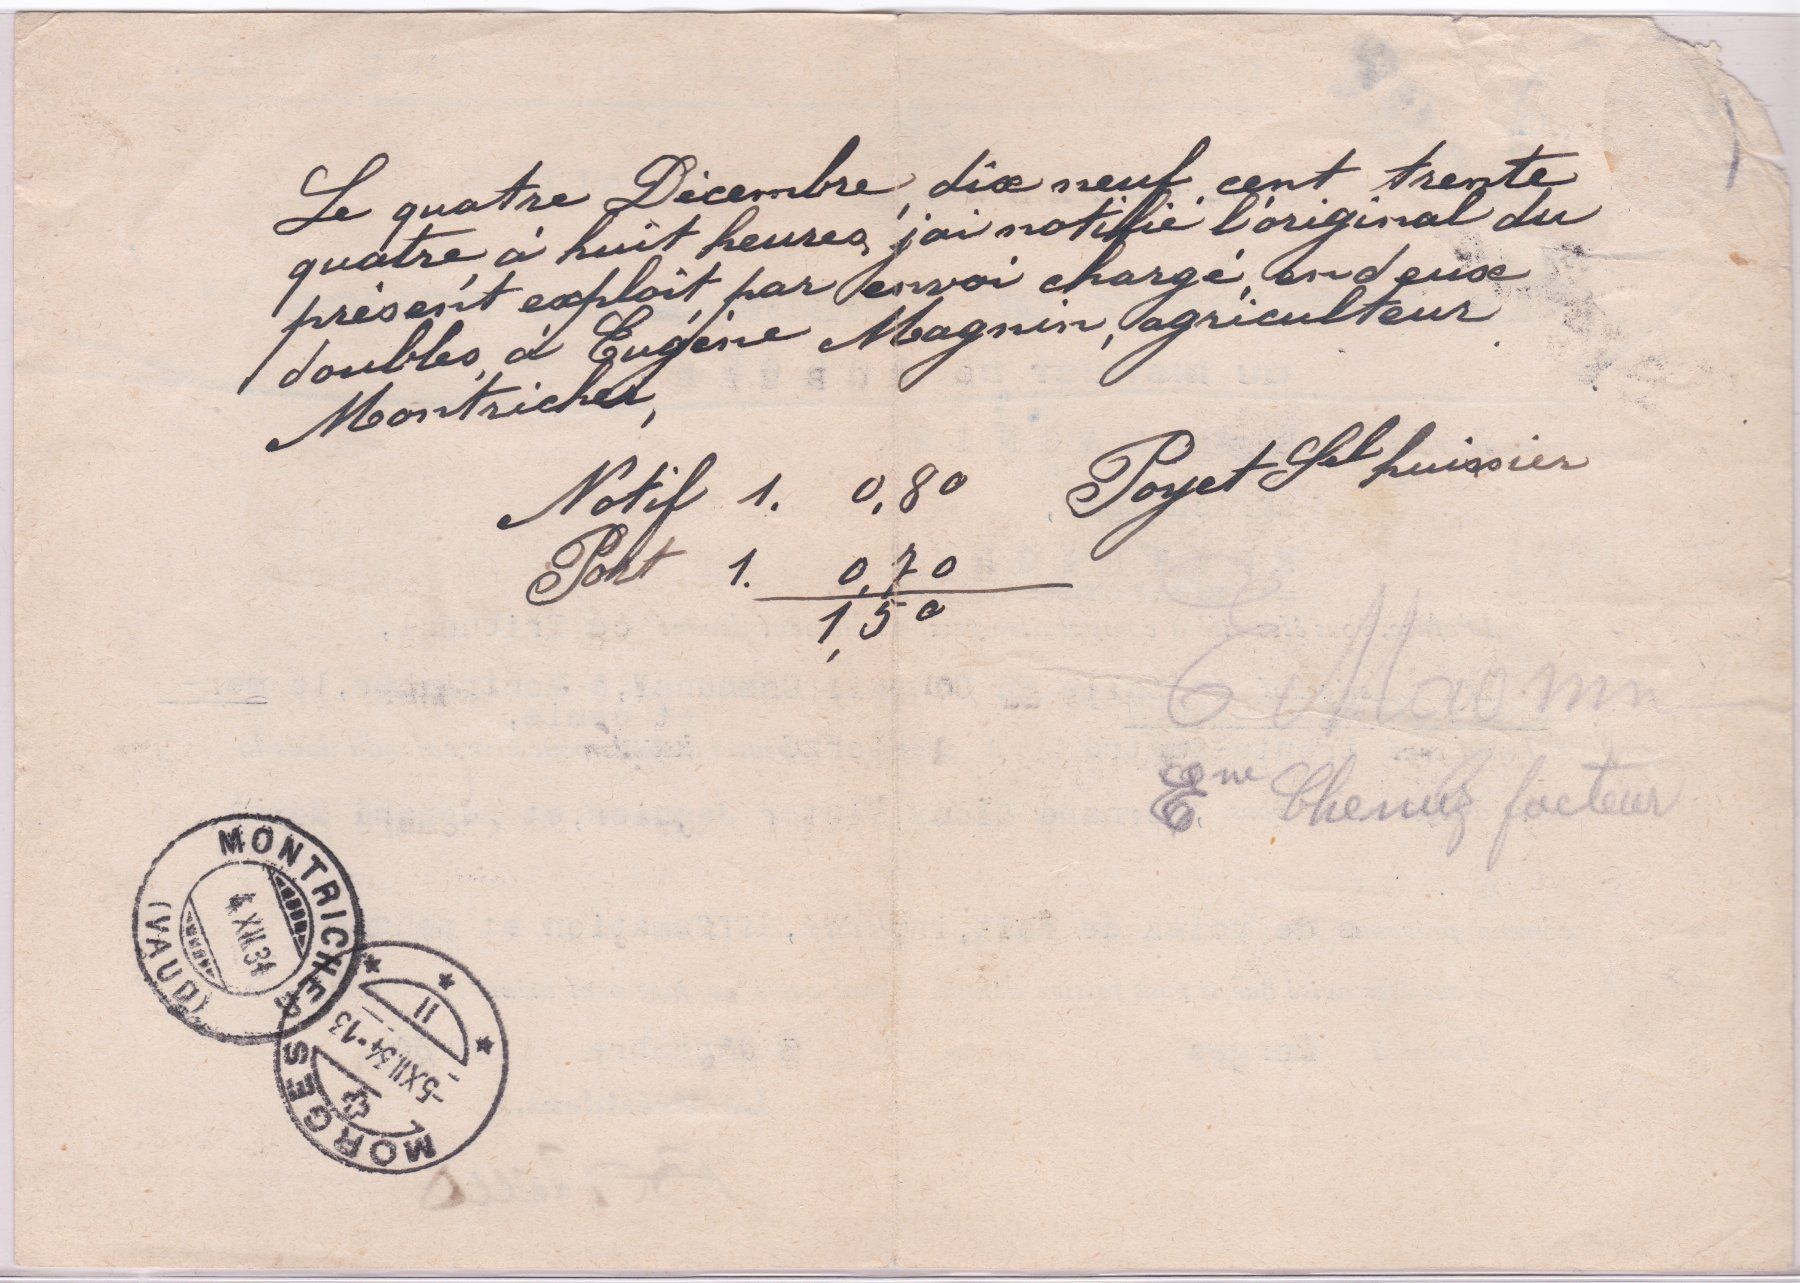 Le quatre Décembre, dix neuf cent trente
quatre à huit heures, j'ai notifié l'original du
présent exploit par envoi chargé, en deux
doubles, à Eugène Magnin, agriculteur
Montricher,
Notif 1. 0,80 Poyet huissier
Port 1. 0,70
1,50
E Magnin
Ene Chenuz facteur
MONTRICHER
(VAUD)
4.XII.34
MORGES
-5.XII.34-13
II